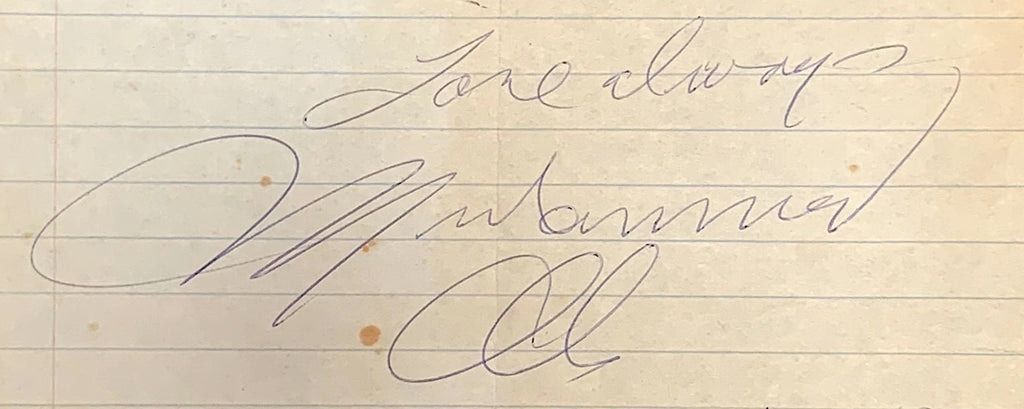 Love always
Muhammad
Ali